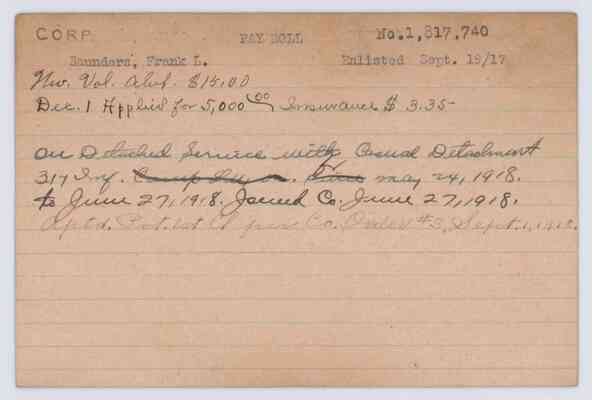 CORP. PAY ROLL No.1,817,740
Saunders, Frank L. Enlisted Sept. 19/17
New. Vol. Alot. $15.00
Dec. 1 Applied for 5,000 00 Insurance $ 3.35-
On Detached Service with Casual Detachment
317 Inf. May 24, 1918.
to June 27, 1918. Joined Co. June 27, 1918.
Aptd. Pvt. 1st Cl per Co. Order #3, Sept. 1, 1918.